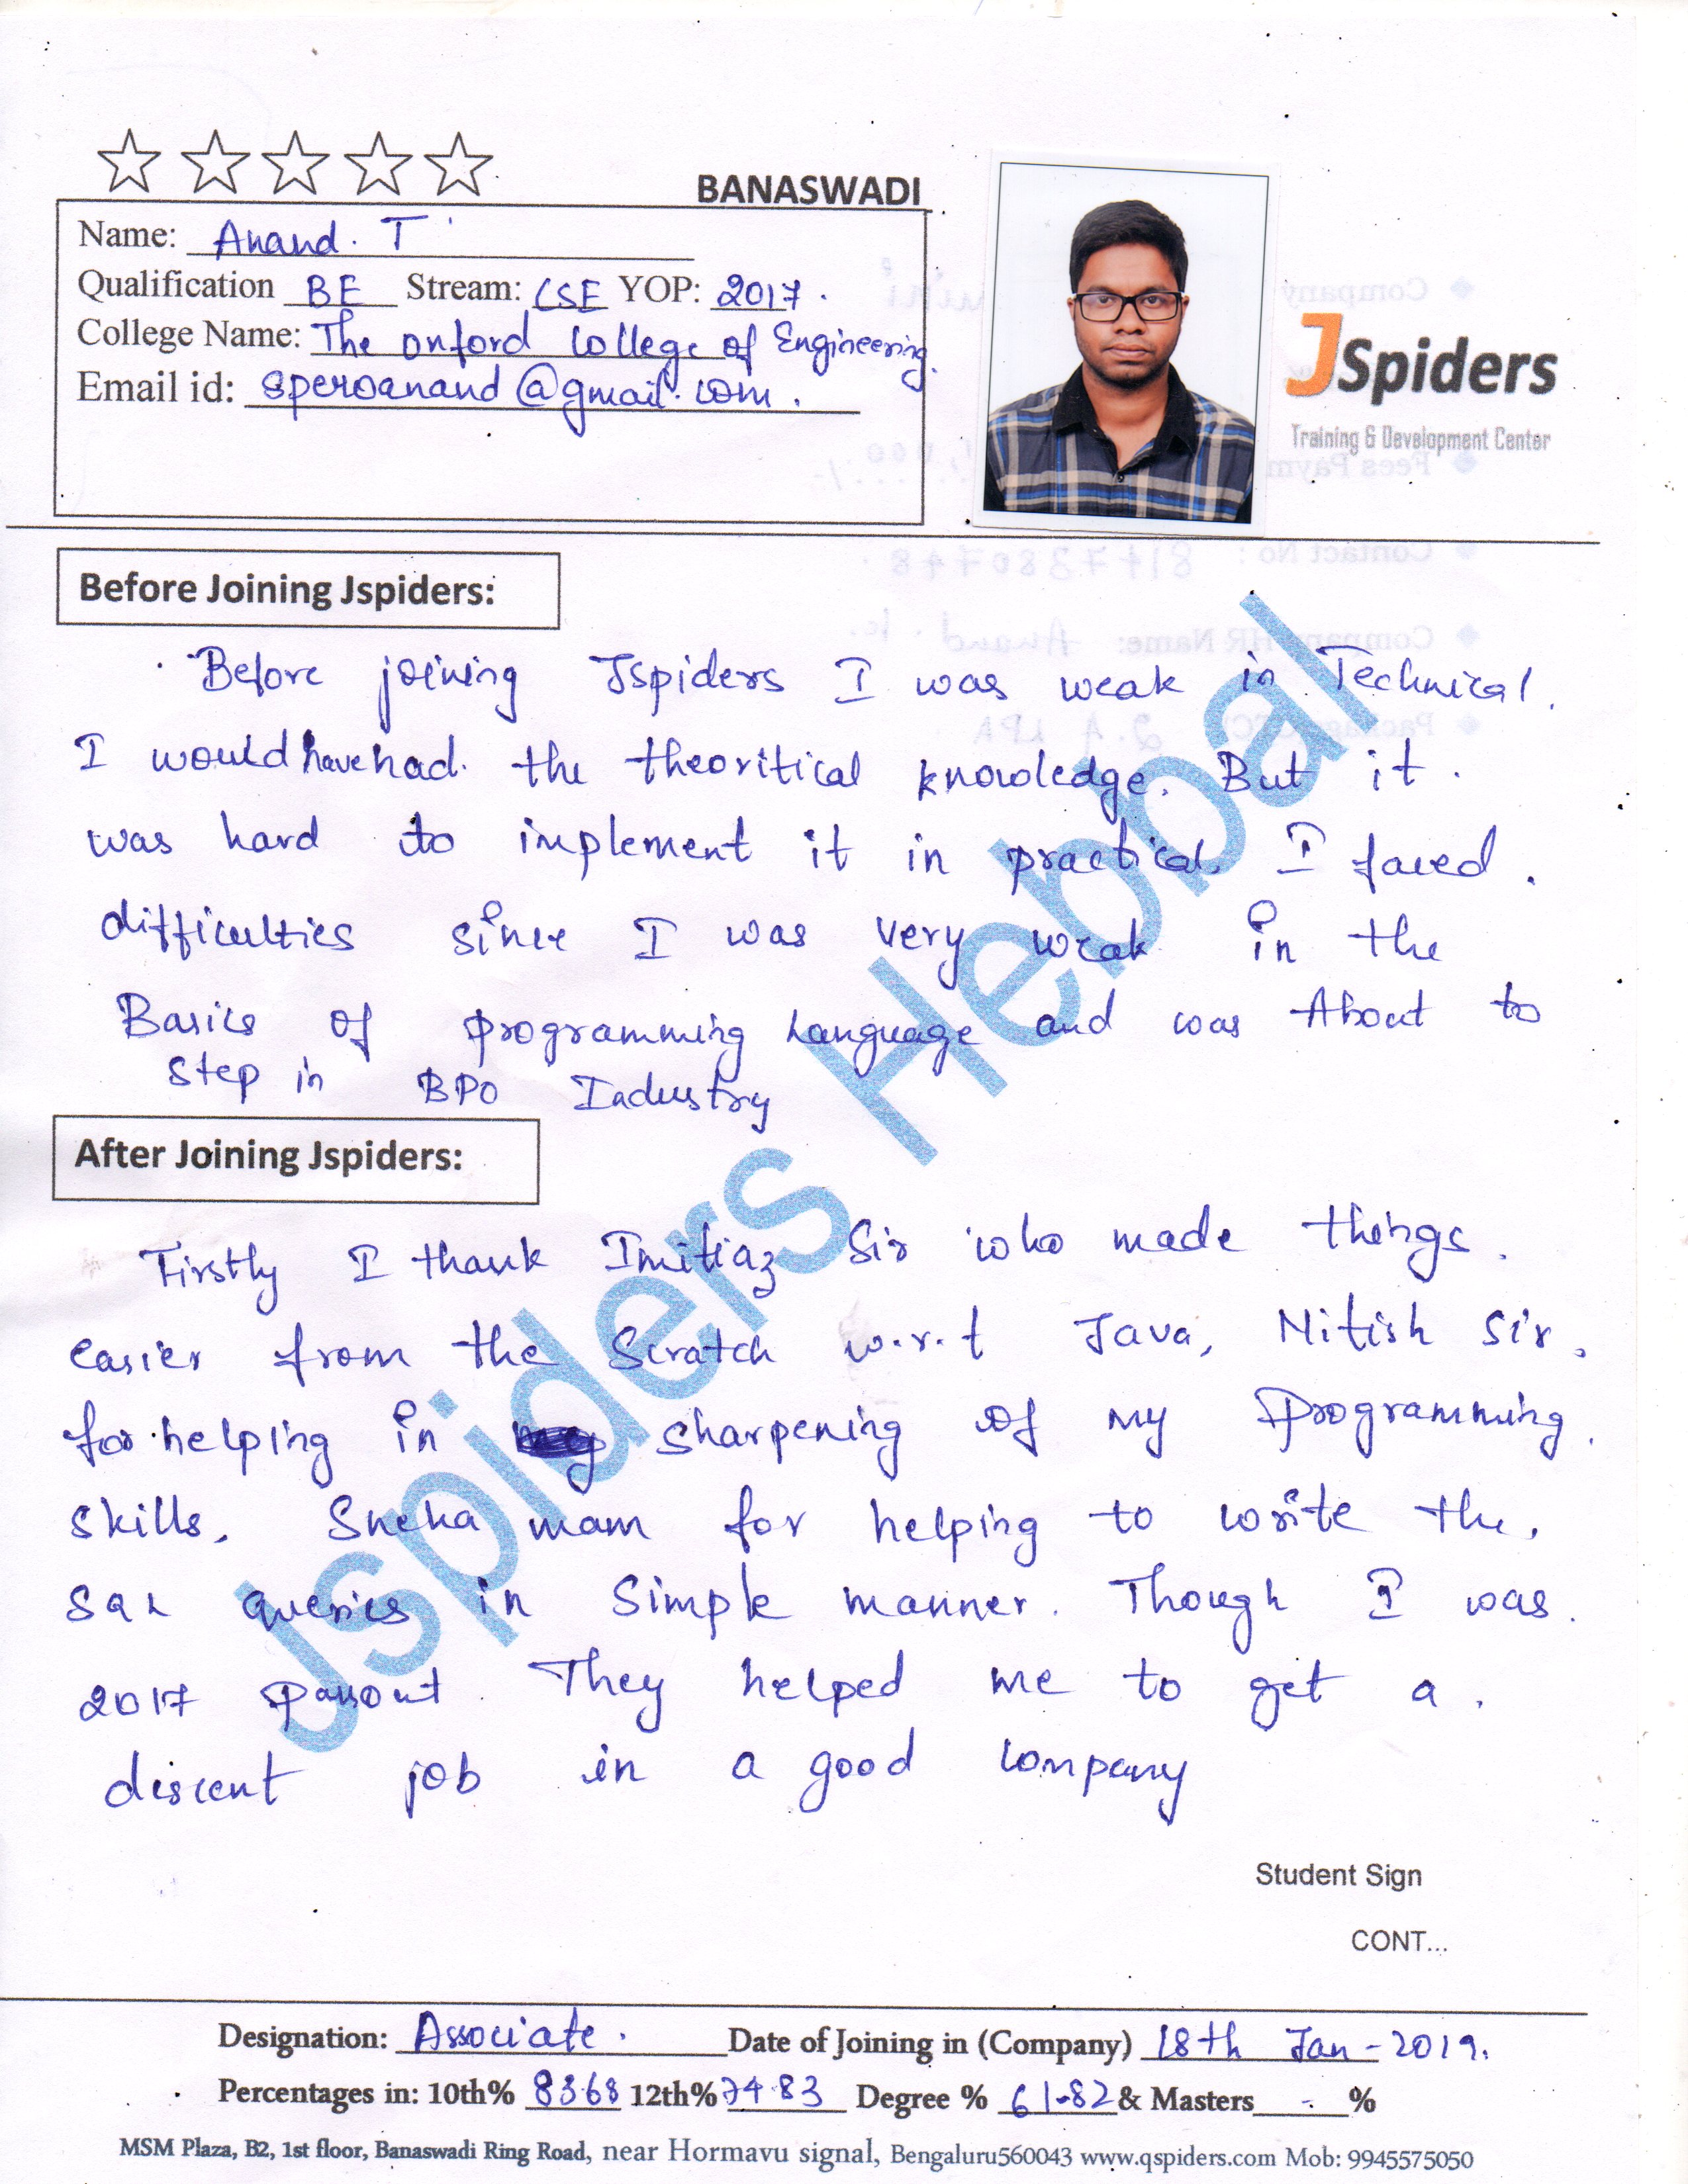 BANASWADI
Name: Anand. T
Qualification BE Stream: CSE YOP: 2017.
College Name: The Onford College of Engineering.
Email id: speroanand@gmail.com.
JSpiders
Training & Development Center
Before Joining Jspiders:
Before joining Jspiders I was weak in Technical.
I would have had. the theoritical knowledge. But it.
was hard to implement it in practical. I faced.
difficulties since I was very weak in the
Basics of programming Language and was About to
step in BPO Industry
After Joining Jspiders:
Firstly I thank Imitiaz Sir who made things.
easier from the Scratch w.r.t Java, Nitish Sir.
for helping in sharpening of my Programming.
skills. Sneha mam for helping to write the.
SQL queries in Simple manner. Though I was.
2017 passout. They helped me to get a.
discent job in a good company
Jspiders Hebbal
Student Sign
CONT...
Designation: Associate. Date of Joining in (Company) 18th Jan-2019.
Percentages in: 10th% 83.68 12th% 74.83 Degree % 61.82 & Masters - %
MSM Plaza, B2, 1st floor, Banaswadi Ring Road, near Hormavu signal, Bengaluru560043 www.qspiders.com Mob: 9945575050